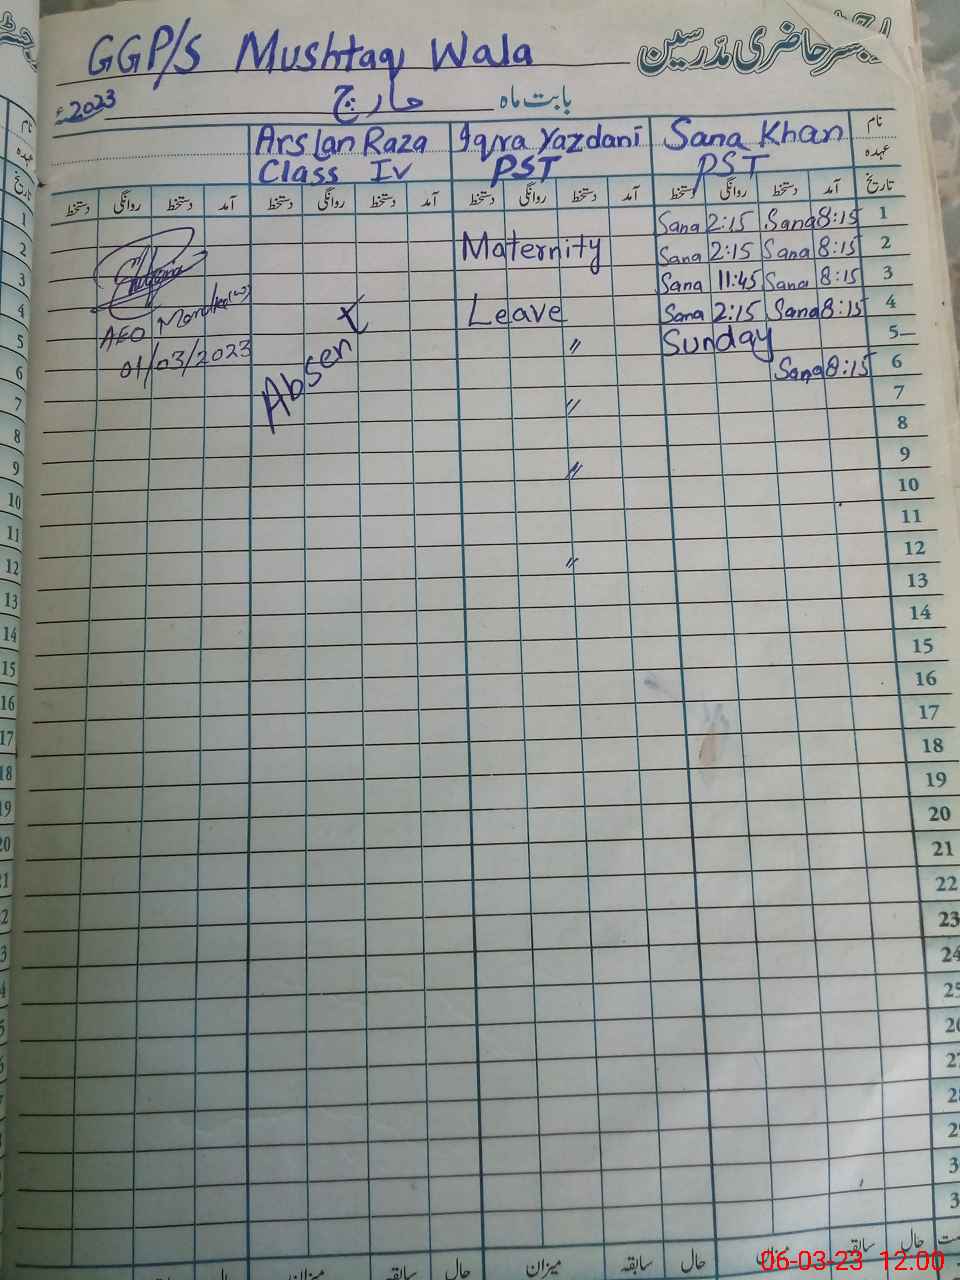 GGP/S Mushtaq Wala رجسٹر حاضری مدرسین
2023ء مارچ بابت ماہ
Arslan Raza Iqra Yazdani Sana Khan نام
Class Iv PST PST عہدہ
دستخط روانگی دستخط آمد دستخط روانگی دستخط آمد دستخط روانگی دستخط آمد دستخط روانگی دستخط آمد تاریخ
Sana 2:15 Sana 8:15 1
Maternity Sana 2:15 Sana 8:15 2
Sana 11:45 Sana 8:15 3
AEO Leave Sana 2:15 Sana 8:15 4
01/03/2023 Absent 〃 Sunday 5
Sana 8:15 6
〃 7
8
〃 9
10
11
〃 12
13
14
15
16
17
18
19
20
21
22
23
24
25
26
27
28
29
حال میزان سابقہ حال میزان سابقہ حال میزان سابقہ حال
06-03-23 12:00